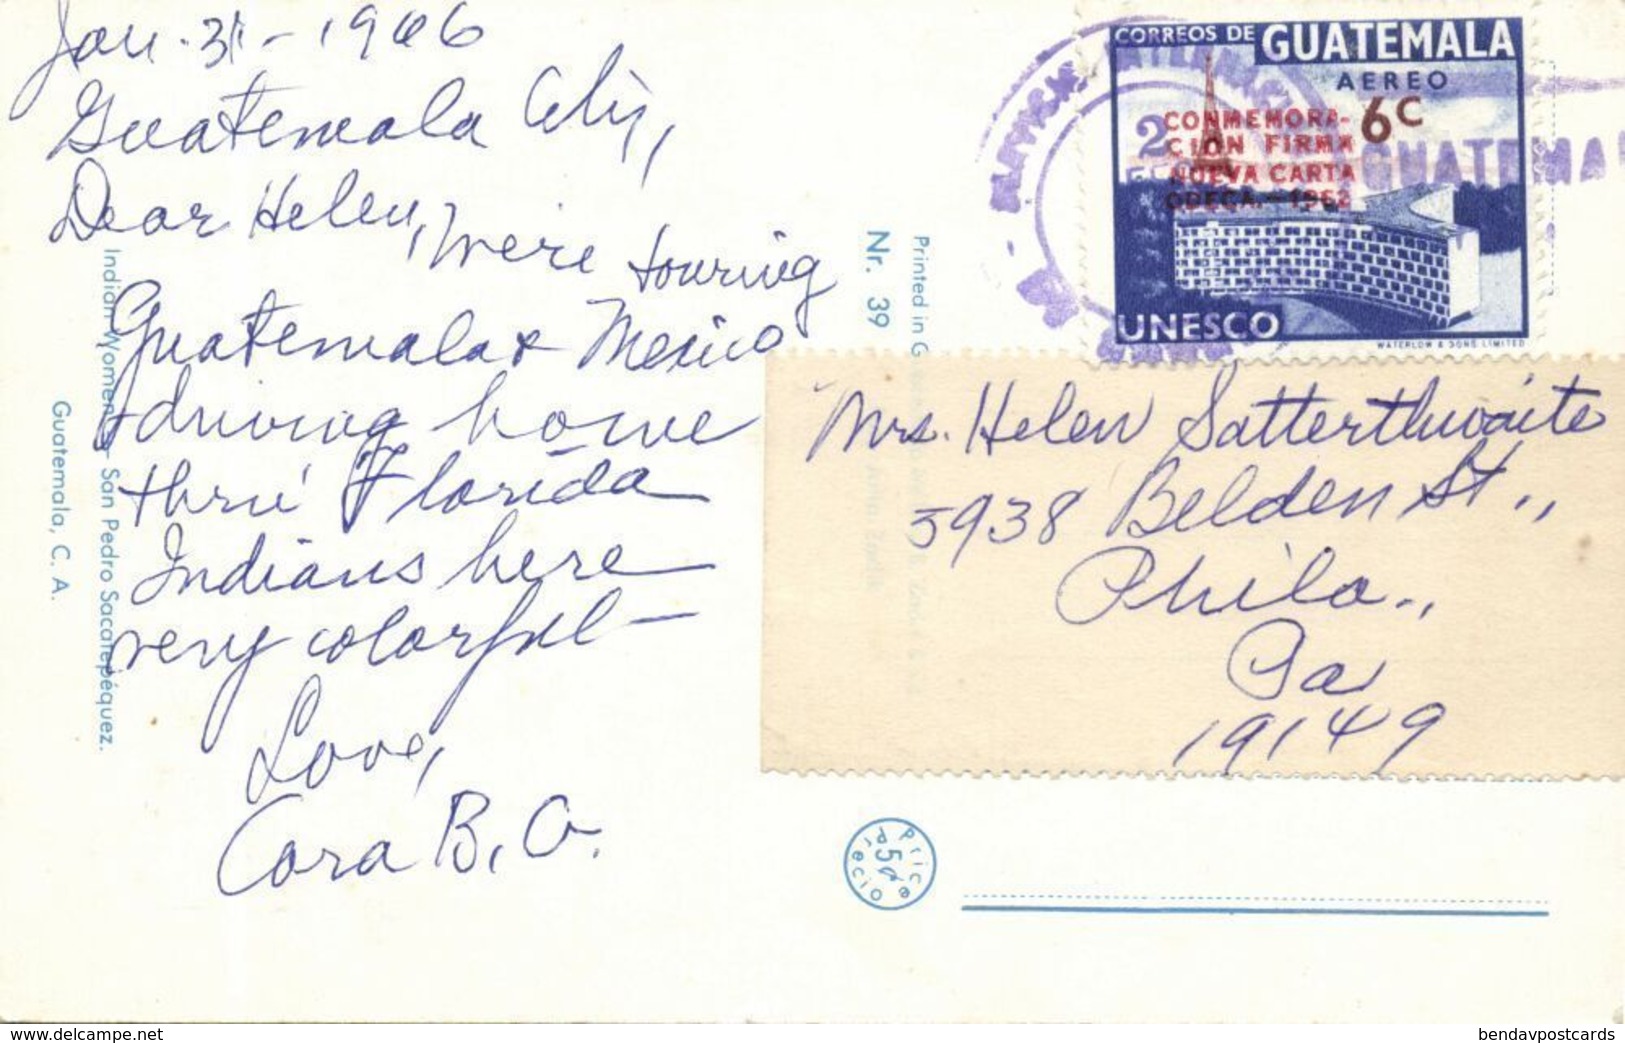 Jan. 31 - 1966
Guatemala City,
Dear Helen, We're touring
Guatemala & Mexico
driving home
thru Florida
Indians here
very colorful —
Love,
Cora B. O.
Indian Women - San Pedro Sacatepéquez.
Guatemala, C. A.
Nr. 39
Printed in G
CORREOS DE GUATEMALA
AEREO
6C
CONMEMORA-
CION FIRMA
NUEVA CARTA
ODECA.-1962
UNESCO
WATERLOW & SONS LIMITED
GUATEMA
Mrs. Helen Satterthwaite
5938 Belden St.,
Phila.,
Pa
19149
Price
5¢
Precio
www.delcampe.net
bendavpostcards